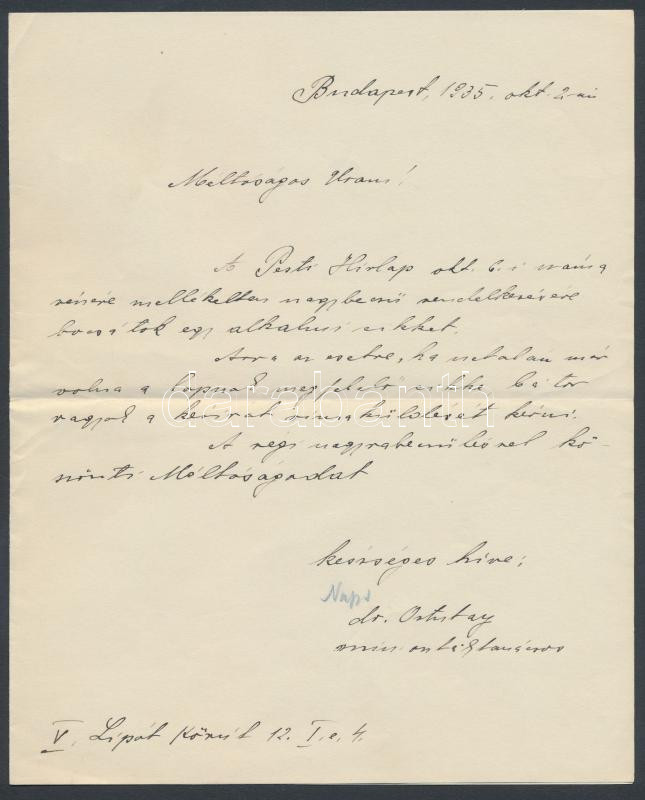 Budapest, 1935. okt. 2-án
Méltóságos Uram!
A Pesti Hirlap okt. 6.-i száma
részére mellékelten nagybecsű rendelkezésére
bocsátok egy alkalmi cikket.
Arra az esetre, ha netalán már
volna a lapnak megfelelő cikke bátor
vagyok a kézirat visszaküldését kérni.
A régi nagyrabecsüléssel kö-
szönti Méltóságodat
készséges híve:
Napl
dr. Ortutay
min. osztálytanácsos
V. Lipót Körút 12. I. e. 4.
darabanth